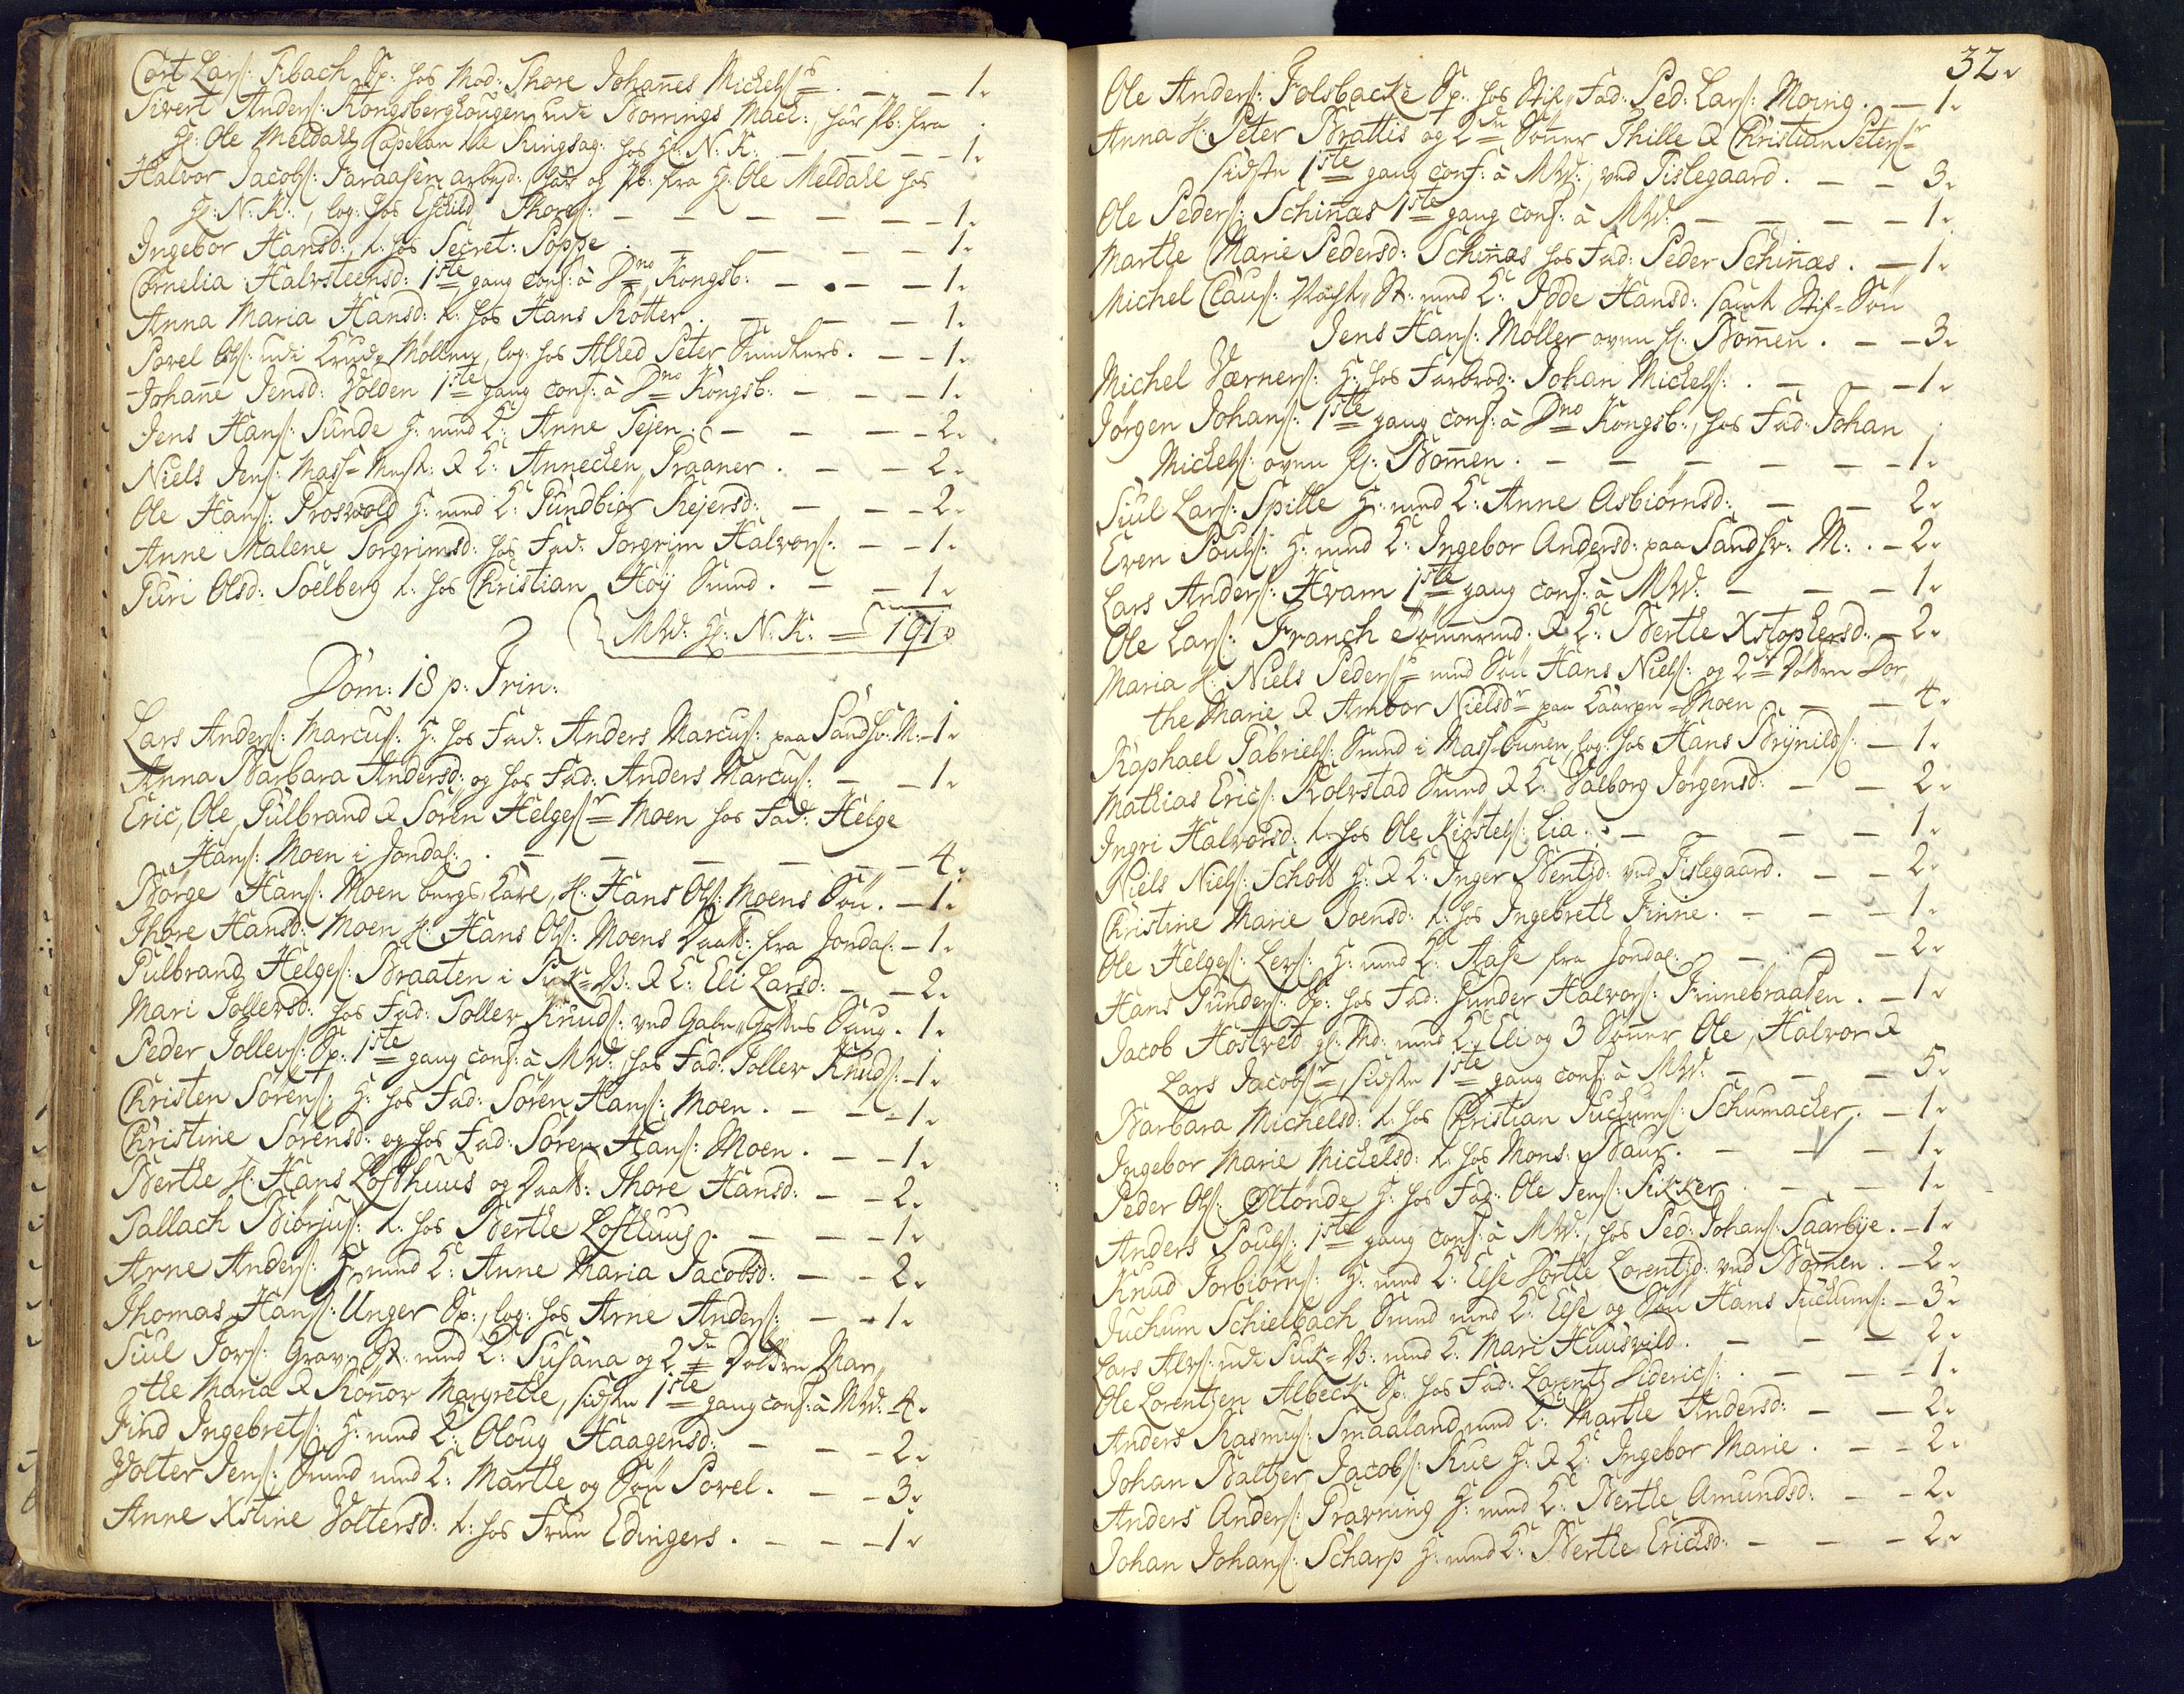 Cort Lars: Fibach Dp: hos Mod: Thore Johañes Michels: — — 1.
Sivert Anders: Kongsberghougen udi Bornings Mach: har Pb: fra
Hr: Ole Meldahl Capelan til Ringsag: hos Hr: N: K: — — — — 1.
Halvor Jacobs: Faraasen arbejd: har og Pb: fra Hr: Ole Meldahl hos
Hr: N: K:, log: hos Eschild Thors: — — — — — — 1.
Ingebor Hansd: t: hos Secret: Poppe. — — — — 1.
Cornelia Halvsteensd: 1ste gang conf: à Dno Kongsb: — — — 1.
Anna Maria Hansd: t: hos Hans Rotter. — — — 1.
Povel Ols: udi Krud-Möllen, log: hos Alhed Peter Smithers. — — 1.
Johañe Jensd: Volden 1ste gang conf: à Dno Kongsb: — — — 1.
Jens Hans: Sunde H: med K: Anne Tejen. — — — — 2.
Niels Jens: Mass-Mest: & K: Annechen Praaner. — — 2.
Ole Hans: Proswold H: med K: Gundbiör Rejersd: — — — 2.
Anne Malene Torgrimsd: hos Fad: Torgrim Halvors: — — 1.
Guri Olsd: Soelberg t: hos Christian Höy Smed. — — 1.
MW: Hr: N: K: = 191.
Dom: 18 p: Trin:
Lars Anders: Marcus: H: hos Fad: Anders Marcus: paa Sandsv: M: — 1.
Anna Barbara Andersd: og hos Fad: Anders Marcus: — — 1.
Eric, Ole, Gulbrand & Sören Helges: Moen hos Fad: Helge
Hans: Moen i Jondal: — — — — — — 4.
Börge Hans: Moen bergs Karl, S: Hans Ols: Moens Sön. — 1.
Thore Hansd: Moen S: Hans Ols: Moens Daatt: fra Jondal: — 1.
Gulbrand Helges: Braaten i Suk-B: & K: Eli Larsd: — — 2.
Mari Tollersd: hos Fad: Toller Knuds: ved Gabe Gottes Saug. 1.
Peder Tollers: Dp: 1ste gang conf: à MW: hos Fad: Toller Knuds: — 1.
Christen Sörens: H: hos Fad: Sören Hans: Moen. — — — 1.
Christine Sörensd: og hos Fad: Sören Hans: Moen. — — 1.
Berthe S: Hans Lofthuus og Daatt: Thore Hansd: — — 2.
Tallach Biörjus: t: hos Berthe Lofthuus. — — — 1.
Arne Anders: H: med K: Anne Maria Jacobsd: — — 2.
Thomas Hans: Unger Dp:, log: hos Arne Anders: — — 1.
Siul Tors: Grav: St: med K: Susana og 2de Döttre Mar-
the Maria & Rönnov Margrethe, sidste 1ste gang conf: à MW: 4.
Find Ingebrets: H: med K: Oloug Haagensd: — — — 2.
Volter Jens: Smed med K: Marthe og Sön Povel. — — 3.
Anne Xstine Voltersd: t: hos Frue Edingers. — — — 1.
32.
Ole Anders: Folsbacke Dp: hos Stif-Fad: Ped: Lars: Moing. — 1.
Anna S: Peter Brattis og 2de Sönner Thille & Christian Peters:
sidste 1ste gang conf: à MW:, ved Tislegaard. — — 3.
Ole Peders: Schinæs 1ste gang conf: à MW: — — — — 1.
Marthe Marie Pedersd: Schinæs hos Fad: Peder Schinæs. — 1.
Michel Claus: St: med K: Jode Hansd: samt Stif-Sön
Jens Hans: Möller oven for Bommen. — — 3.
Michel Værners: H: hos Farbrod: Johan Michels: — — — 1.
Jörgen Johans: 1ste gang conf: à Dno Kongsb:, hos Fad: Johan
Michels: oven for Bommen. — — — — — 1.
Siul Lars: Spille H: med K: Anne Asbiörnsd: — — 2.
Even Pouls: H: med K: Ingebor Andersd: paa Sandsv: M: — 2.
Lars Anders: Hvam 1ste gang conf: à MW: — — — 1.
Ole Lars: Franch Tömmermd: & K: Berthe Xstophersd: — 2.
Maria S: Niels Peders: med Sön Hans Niels: og 2de Döttre Dor-
the Marie & Ambor Nielsd: paa Kaarpe-Moen — — 4.
Raphael Gabriels: Smed i Mass-Ounen, log: hos Hans Brynilds: — 1.
Mathias Erics: Kolvstad Smed & K: Valborg Jörgensd: — — 2.
Ingri Halvorsd: t: hos Ole Kiöstels: Lia. — — — — 1.
Niels Niels: Schott H: & K: Inger Bentzd: ved Tislegaard. — — 2.
Christine Marie Joensd: t: hos Ingebreth Finne. — — — 1.
Ole Helges: Lers: H: med K: Aase fra Jondal: — — — 2.
Hans Gunders: Dp: hos Fad: Gunder Halvors: Finnebraaten. — 1.
Jacob Hostved gl: Md: med K: Eli og 3 Sönner Ole, Halvor &
Lars Jacobs:, sidste 1ste gang conf: à MW: — — — 5.
Barbara Michelsd: t: hos Christian Juchums: Schumacher. — 1.
Ingebor Marie Michelsd: t: hos Mons: Baur. — — — 1.
Peder Ols: Öltönde H: hos Fad: Ole Jens: Sikker. — — 1.
Anders Pouls: 1ste gang conf: à MW:, hos Ped: Johans: Saarbye. — 1.
Knud Torbiörns: H: med K: Else Dorthe Lorentzd: ved Bommen. — 2.
Juchum Schielbach Smed med K: Else og Sön Hans Juchums: — 3.
Lars Alvs: udi Suk-B: med K: Mari Huusvild. — — — 2.
Ole Lorentzen Albeck Dp: hos Fad: Lorentz Diderics: — — — 1.
Anders Rasmus: Smaaland med K: Marthe Andersd: — — 2.
Johan Baltzer Jacobs: Rue H: & K: Ingebor Marie. — — 2.
Anders Anders: Pravning H: med K: Berthe Amundsd: — — 2.
Johan Johans: Scharp H: med K: Berthe Erichsd: — — — 2.